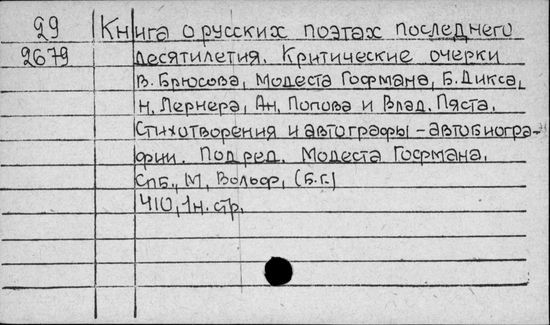 29 Книга о русских поэтах последнего
2679 десятилетия. Критические очерки
В. Брюсова, Модеста Гофмана, Б. Дикса,
Н. Лернера, Ан. Попова и Влад. Пяста.
Стихотворения и автографы - автобиогра-
фии. Под ред. Модеста Гофмана.
СПБ., М, Вольф, (б.г.)
410, 1н. стр.